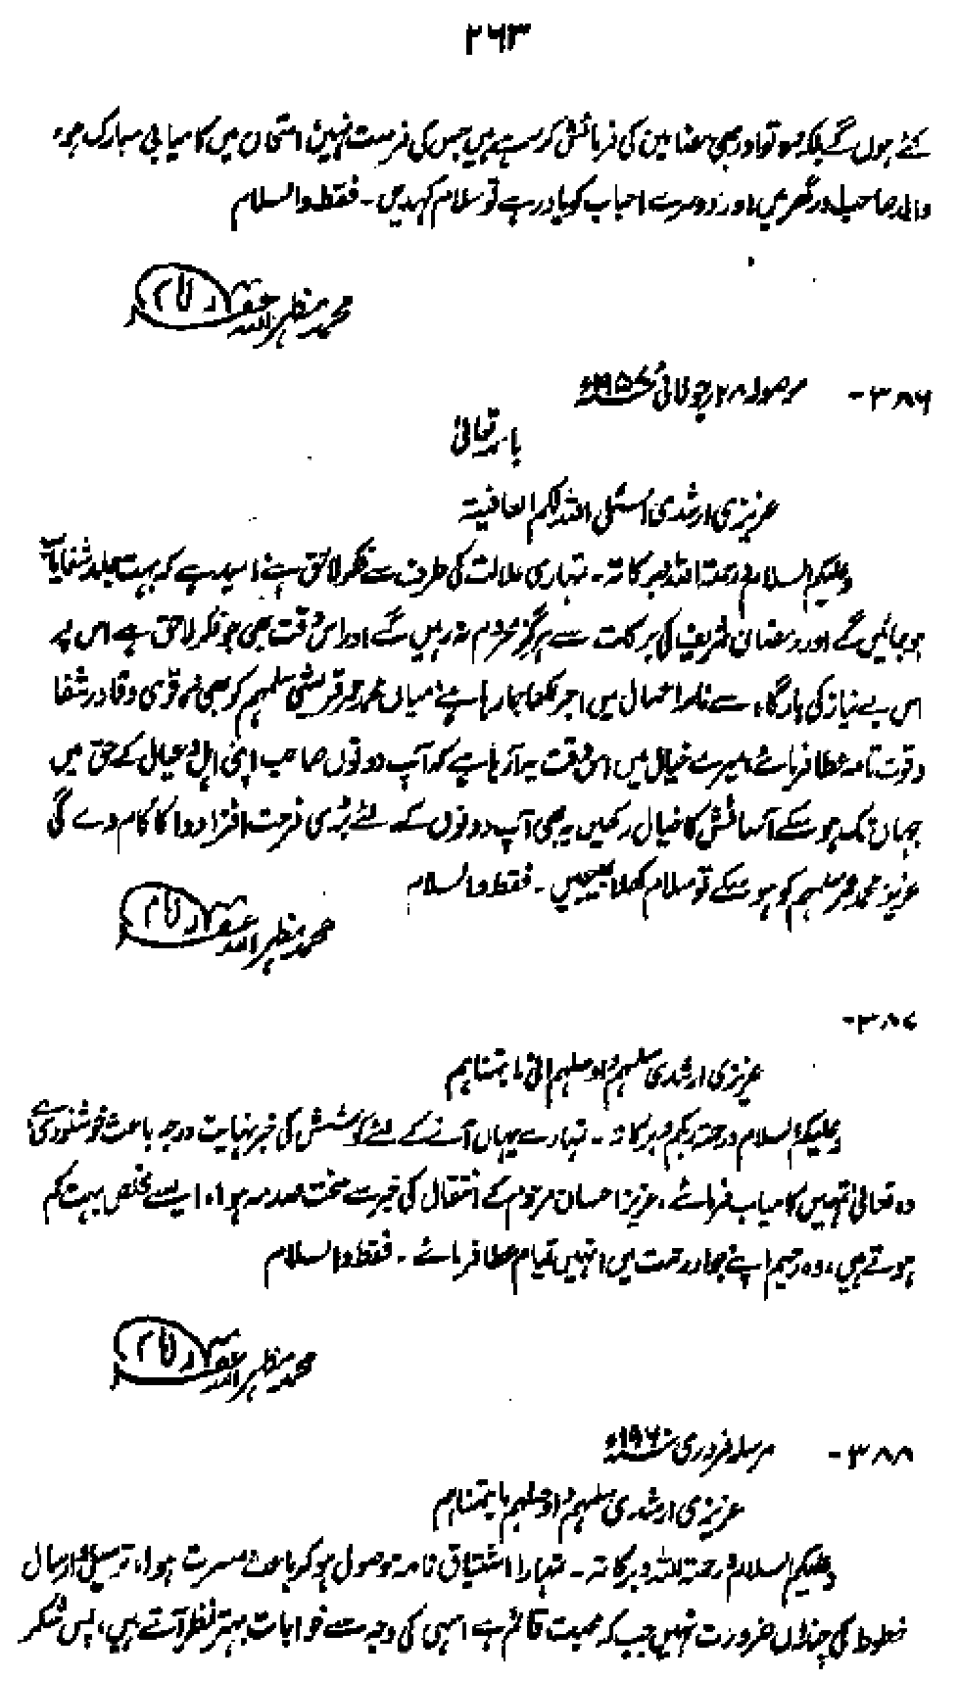 ۲۶۳
گئے ہوں گے بلکہ وہ تو اور بھی مضامین کی فرمائش کر رہے ہیں جس کی فرصت نہیں، امتحان میں کامیابی مبارک ہو،
والد صاحب اور گھر میں اور دوسرے احباب کو یاد رہے تو سلام کہہ دیں۔ فقط والسلام
محمد مظہر اللہ غفرلہ
۳۸۶- مرصولہ ۲۸ جولائی ۱۹۵۶ء
باسمہ تعالیٰ
عزیزی ارشدی اسئل اللہ لکم العافیتہ
وعلیکم السلام ورحمتہ اللہ وبرکاتہ۔ تمہاری علالت کی طرف سے فکر لاحق ہے، امید ہے کہ بہت جلد شفایاب
ہو جائیں گے اور رمضان شریف کی برکت سے ہرگز محروم نہ رہیں گے اور اس وقت بھی جو فکر لاحق ہے اس پر
اس بے نیاز کی بارگاہ سے نامہ اعمال میں اجر لکھا جا رہا ہے، میاں محمد عمر قریشی سلمہم کو بھی وہ قوی و قادر شفا
و قوت تامہ عطا فرمائے، میرے خیال میں اس وقت یہ آ رہا ہے کہ آپ دونوں صاحب اپنی اہل و عیال کے حق میں
جہاں تک ہو سکے آسائش کا خیال رکھیں یہ بھی آپ دونوں کے لئے بڑی فرحت افزا دوا کا کام دے گی
عزیز محمد عمر سلمہم کو ہو سکے تو سلام کہلا بھیجیں۔ فقط والسلام
محمد مظہر اللہ غفرلہ
۳۸۷-
عزیزی ارشدی سلمہم و اوصلہم الیٰ ما یتمناہم
وعلیکم السلام ورحمتہ ربکم وبرکاتہ۔ تمہارے یہاں آنے کے لئے کوشش کی خبر نہایت درجہ باعث خوشنودی ہے
وہ تعالیٰ تمہیں کامیاب فرمائے، عزیز احسان مرحوم کے انتقال کی خبر سے سخت صدمہ ہوا، ایسے مخلص بہت کم
ہوتے ہیں، وہ رحیم اپنے جوار رحمت میں انہیں مقام عطا فرمائے۔ فقط والسلام
محمد مظہر اللہ غفرلہ
۳۸۸- مرسلہ فروری ۱۹۶۰ء
عزیزی ارشدی سلمہم و اوصلہم ما یتمناہم
وعلیکم السلام ورحمتہ اللہ وبرکاتہ۔ تمہارا اشتیاق نامہ موصول ہو کر باعث مسرت ہوا، ترسیل و ارسال
خطوط کی چنداں ضرورت نہیں جب کہ محبت قائم ہے اسی کی وجہ سے خوابات بہتر نظر آتے ہیں، پس شکر